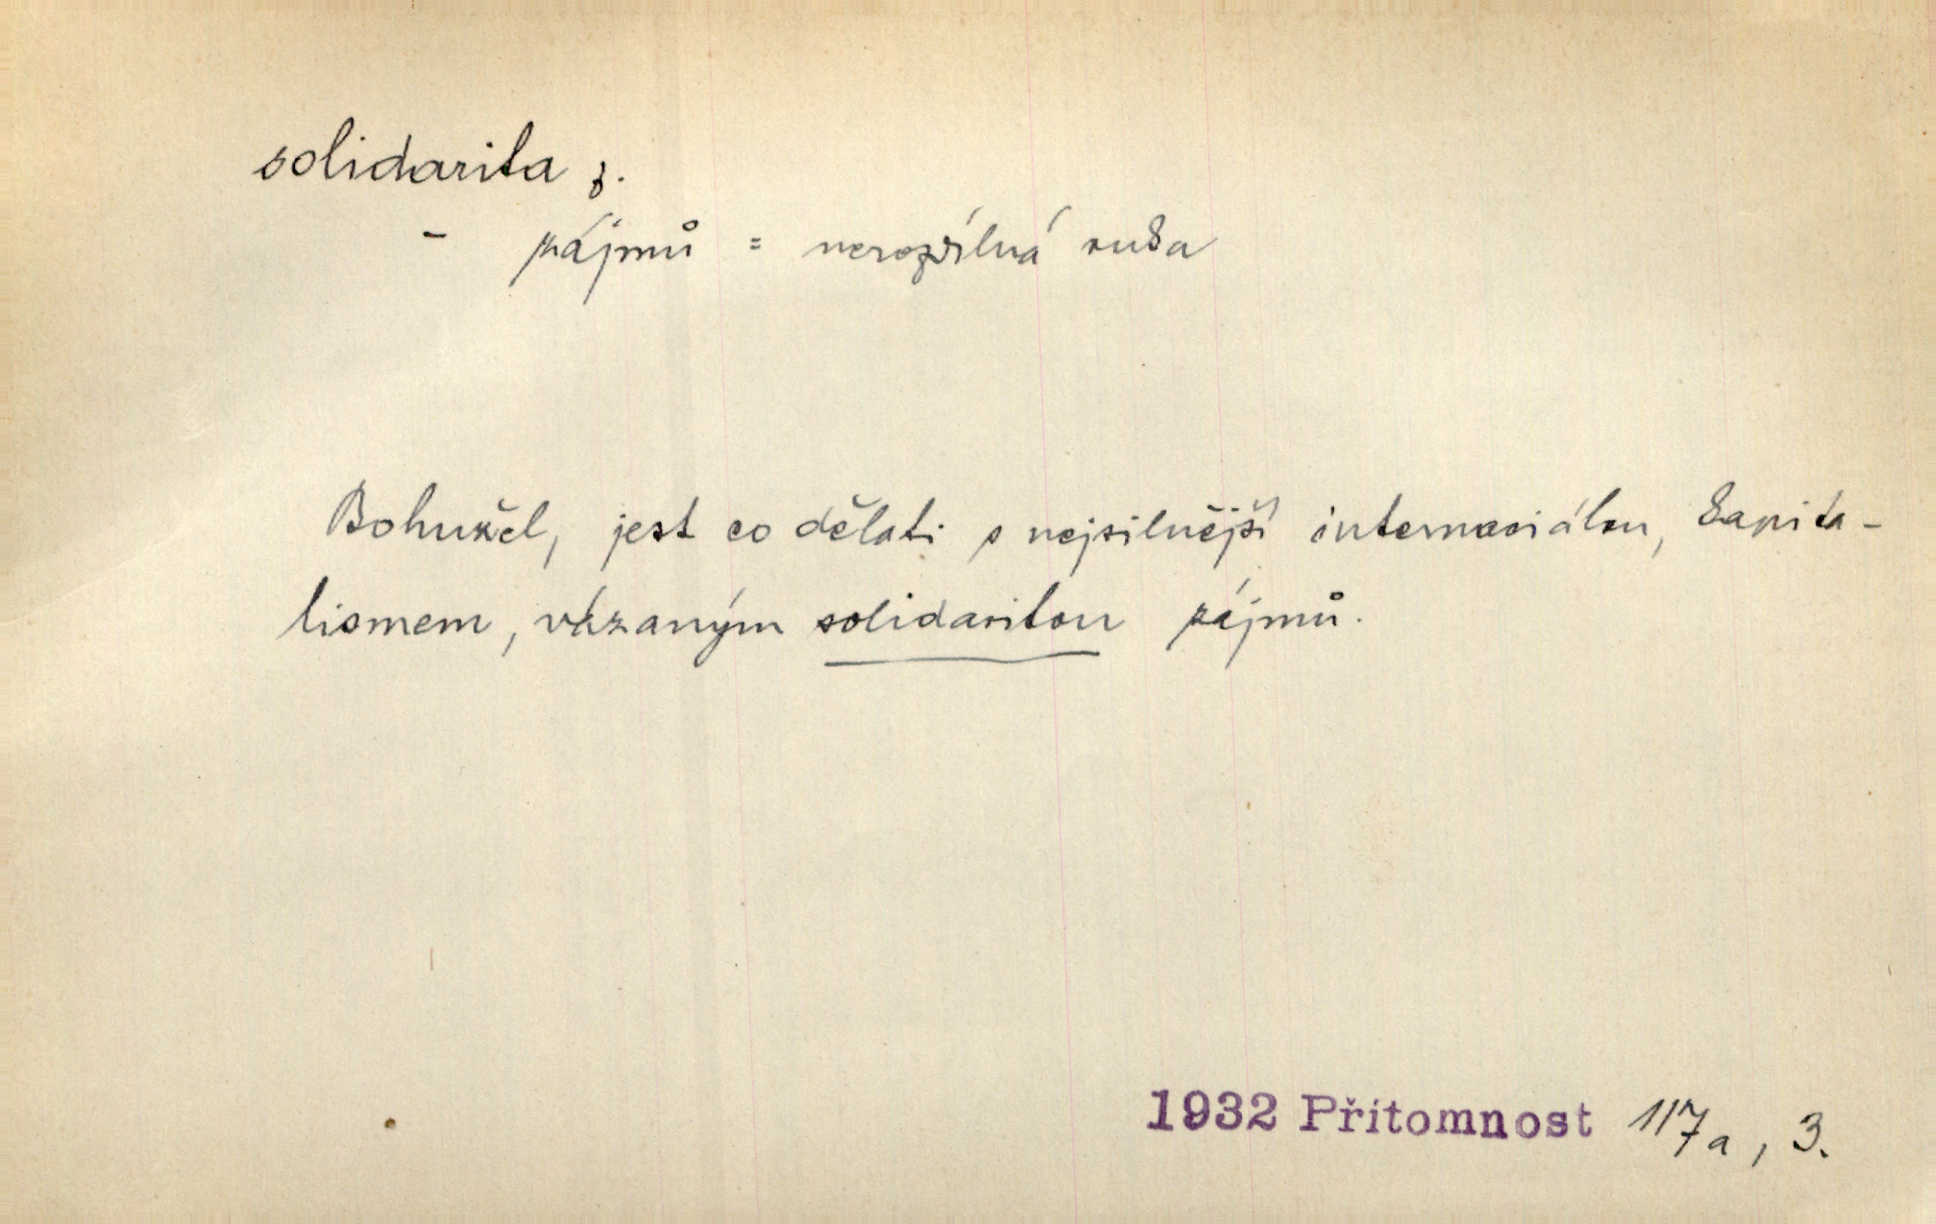 solidarita ž.
- zájmů = nerozdílná ruka
Bohužel, jest co dělati s nejsilnější internaciálou, kapita-
lismem, vázaným solidaritou zájmů.
1932 Přítomnost 117a, 3.